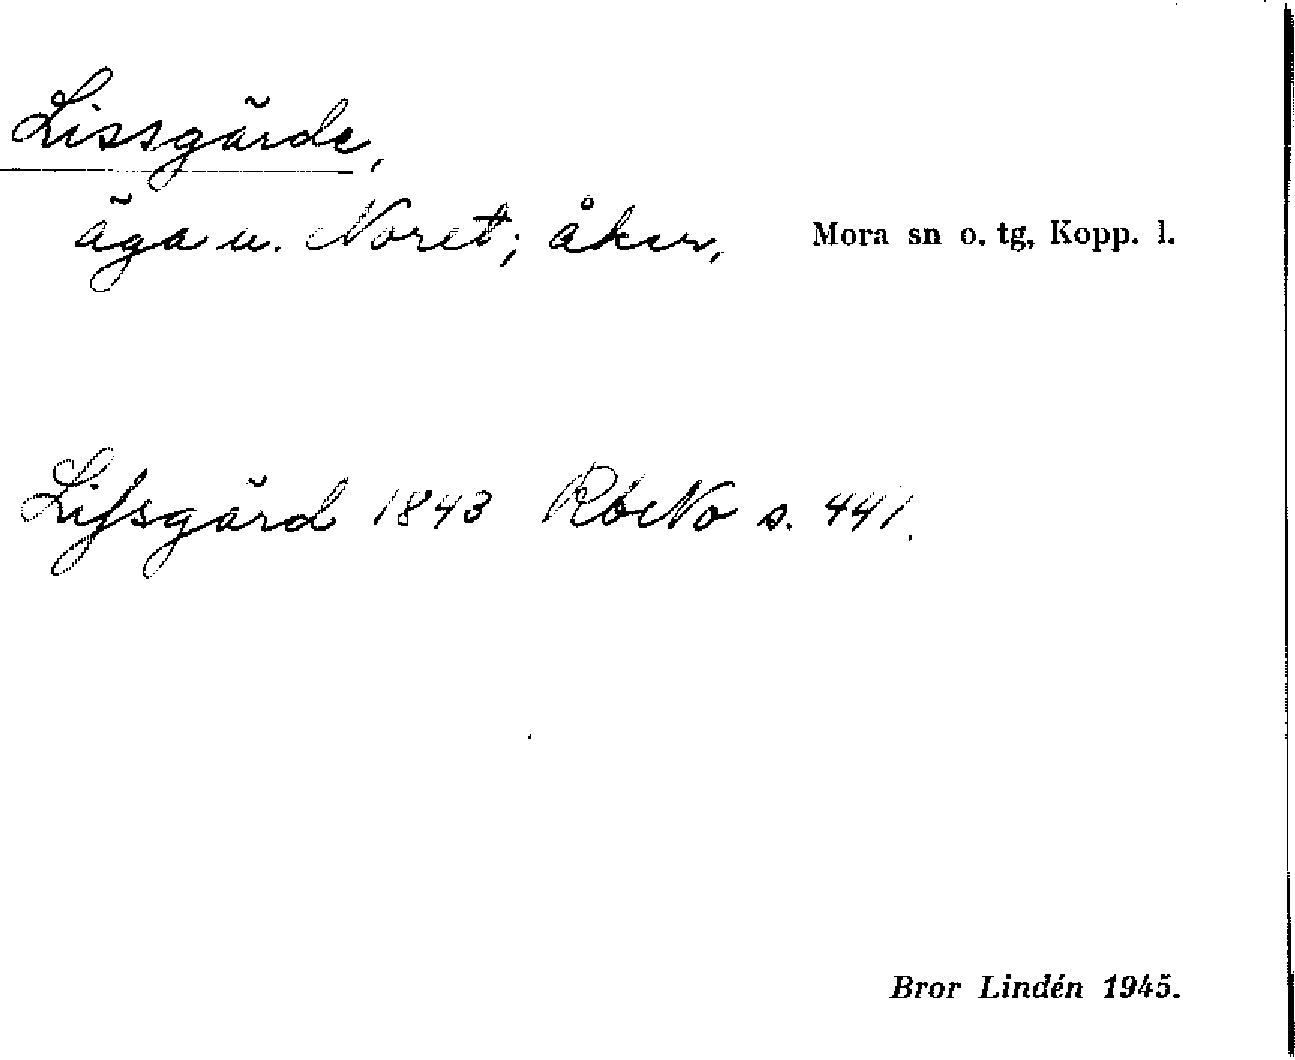 Lissgärde,
äga u. Noret; åker,
Mora sn o. tg, Kopp. l.
Lifsgärd 1843 RöNo s. 441.
Bror Lindén 1945.